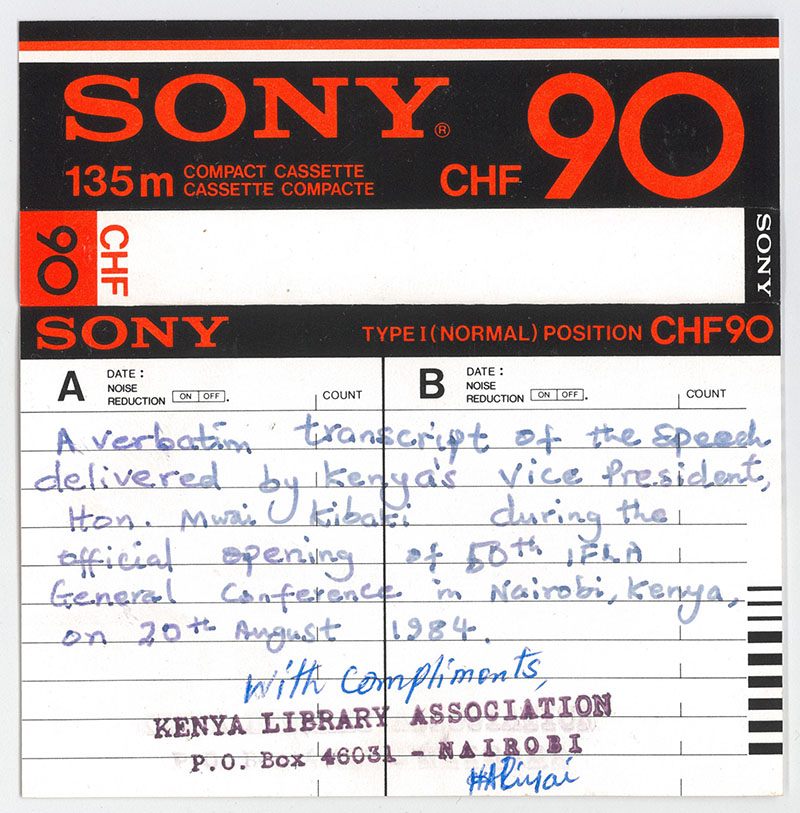 SONY®
90
135m COMPACT CASSETTE
CASSETTE COMPACTE
CHF
90
CHF
SONY
SONY TYPE I (NORMAL) POSITION CHF90
A DATE:
NOISE
REDUCTION ON OFF. COUNT
B DATE:
NOISE
REDUCTION ON OFF. COUNT
A verbatim transcript of the Speech
delivered by Kenya's Vice President,
Hon. Mwai Kibaki during the
official opening of 50th IFLA
General Conference in Nairobi, Kenya,
on 20th August 1984.
With Compliments,
KENYA LIBRARY ASSOCIATION
P.O. Box 46031 - NAIROBI